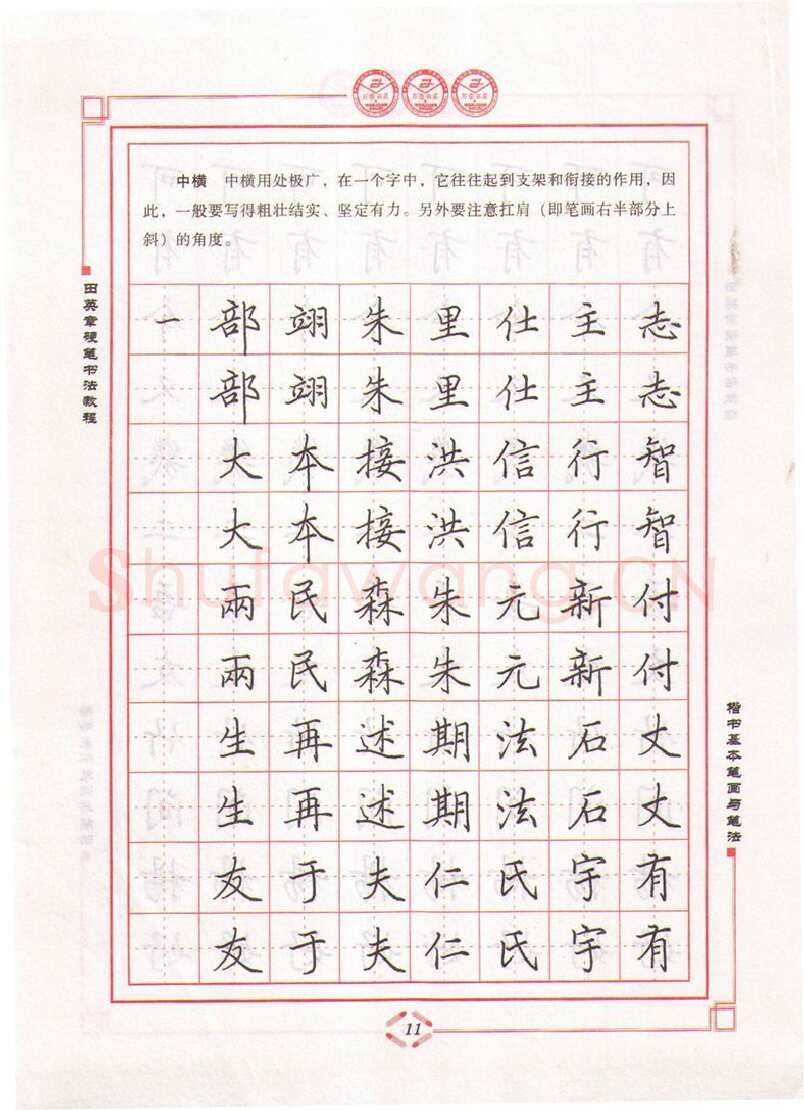 中横 中横用处极广，在一个字中，它往往起到支架和衔接的作用，因
此，一般要写得粗壮结实、坚定有力。另外要注意扛肩（即笔画右半部分上
斜）的角度。
田英章硬笔书法教程
一 部 翊 朱 里 仕 主 志
部 翊 朱 里 仕 主 志
大 本 接 洪 信 行 智
大 本 接 洪 信 行 智
Shufawang.CN
兩 民 森 朱 元 新 付
兩 民 森 朱 元 新 付
生 再 述 期 法 石 丈
生 再 述 期 法 石 丈
友 于 夫 仁 氏 宇 有
友 于 夫 仁 氏 宇 有
楷书基本笔画与笔法
11